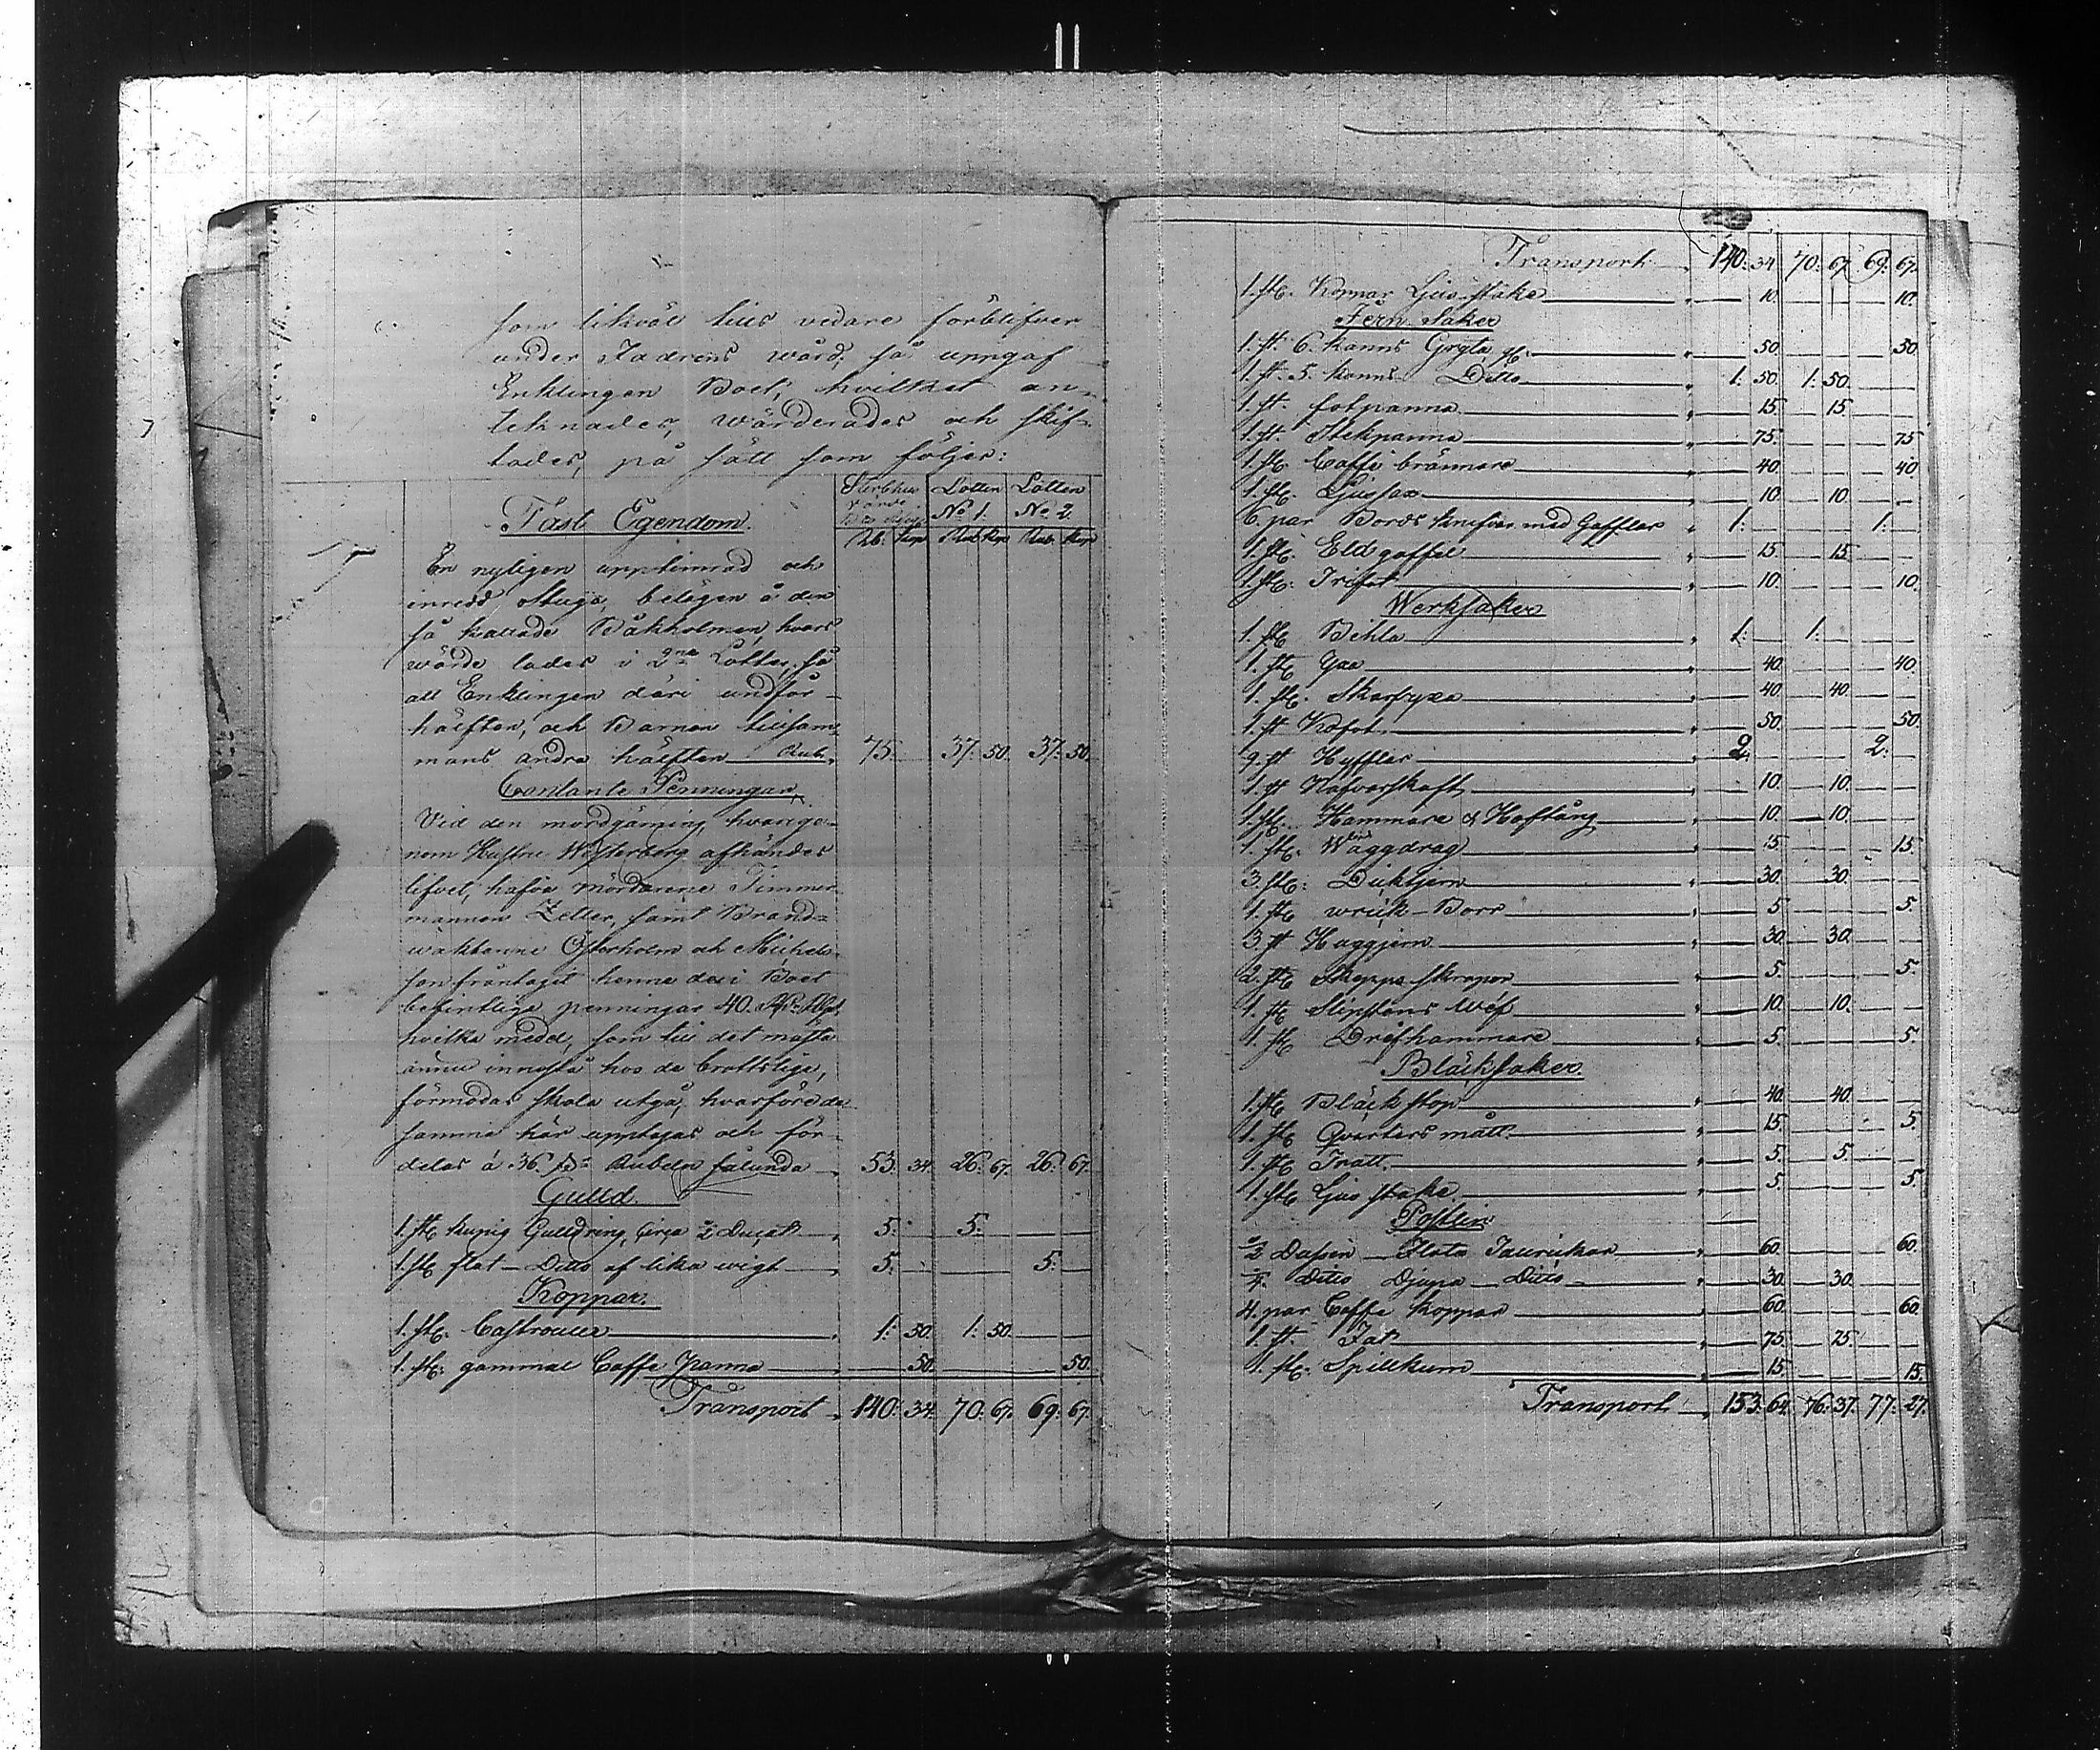 som likväl tills vidare förblifver
under Fadrens wård, så uppgaf
Enklingen Boet, hvilket an-
teknades, wärderades och skif-
tades, på sätt som följer:
Sterbhus Lotten Lotten
värde No 1. No 2.
Fast Egendom.
Rub. Kop. Rub. Kop. Rub. Kop.
En nyligen upptimrad och
inredd Stuga, belägen å den
så kallade Båkholmen, hvars
wärde lades i 2ne Lotter, så
att Enklingen däri undfår
hälften, och Barnen tillsam-
mans andra hälften Rub. 75. 37. 50. 37. 50.
Contante Penningar
Vid den mordgärning, hvarige-
nom Hustru Westerberg afhändes
lifvet, hafva mördarene Timmer-
mannen Zetter, samt Brand-
waktarne Österholm och Michels-
son fråntagit henne de i Boet
befintliga penningar 40. Rb. Slfr,
hvilka medel, som till det mästa
ännu innestå hos de brottslige,
förmodas skola utgå, hvarföre de
samma här upptagas och för-
delas á 36. Rubeln sålunda 53. 34. 26. 67. 26. 67.
Gulld.
1. st. kupig Gulldring, circa ½ Ducat 5. 5.
1. st. flat Ditto af lika wigt 5. 5.
Koppar.
1. st. Castroull 1. 50. 1. 50.
1. st. gammal Caffe Panna 50. 50.
Transport 140. 34. 70. 67. 69. 67.
Transport 140. 34. 70. 67. 69. 67.
1. st. Koppar Ljusstake 10. 10.
Jern Saker
1. st. 6. kanns Gryta 50. 50.
1. st. 5. kanns Ditto 1. 50. 1. 50.
1. st. fotpanna 15. 15.
1. st. Stekpanna 75. 75
1. st. Caffé brännare 40. 40.
1. st. Ljussax 10. 10.
6. par Bords knifvar med Gafflar 1. 1.
1. st. Eldgaffel 15. 15.
1. st. Trifot 10. 10.
Werksaker
1. st. Bihla 1. 1.
1. st. Yxa 40. 40.
1. st. Skarfyxa 40. 40.
1. st. Kofot 50. 50.
9. st. Hyfflar 2. 2.
1. st. Nafvarskaft 10. 10.
1. st. Hammare & Hoftång 10. 10.
1. st. Wäggdrag 15. 15.
3. st. Dicktjern 30. 30.
1. st. wrick-Borr 5. 5.
3. st. Huggjern 30. 30.
2. st. Skepps Skrapor 5. 5.
1. st. Slipstens Wef 10. 10.
1. st. Drifhammare 5. 5.
Bläcksaker.
1. st. Bläck stop 40. 40.
1. st. Qvarters mått 15. 5.
1. st. Tratt. 5. 5.
1. st. Ljus stake 5. 5.
Postlin
½ Dussin Flata Taurickar 60. 60.
Ditto Djupa Ditto 30. 30.
4. par Caffe koppar 60. 60.
1. st. Fat 75. 75.
1. st. Spillkum 15. 15.
Transport 153. 64. 76. 37. 77. 27.